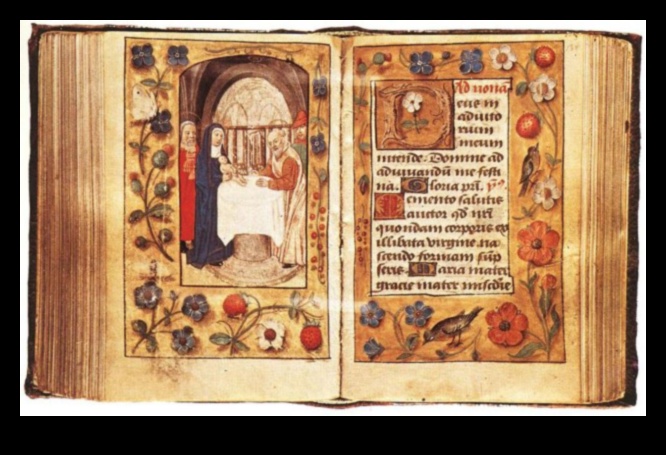 Ad nona
eus in
adiuto
rium
meum
intende. Domine ad
adiuuandū me festi
na. Gloria pri.
emento salutis
auctor qd nrī
quondam corporis ex
illibata virgine na
scendo formam sūp
seris. Maria mater
gracie mater miscdie